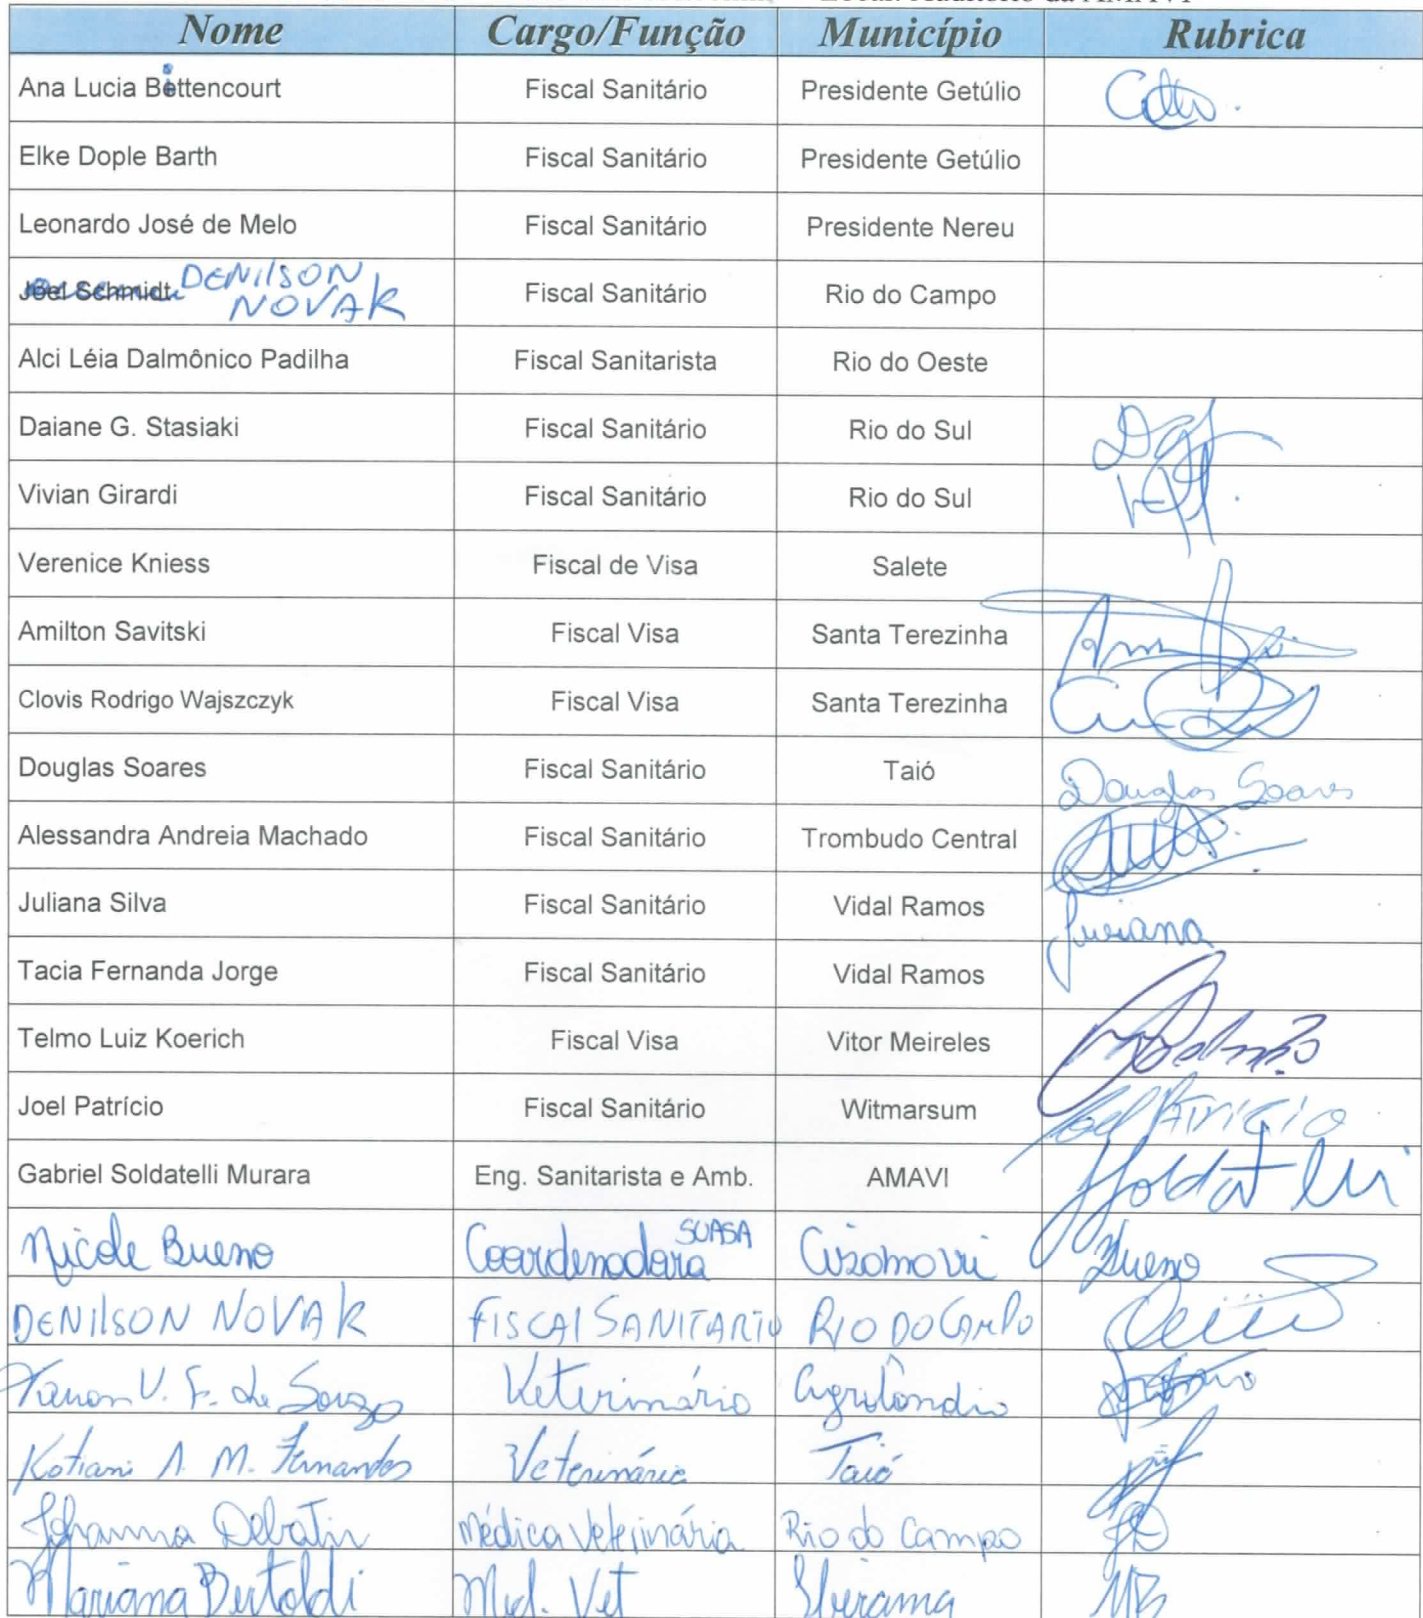 Local: Auditório da AMAVI
Nome Cargo/Função Município Rubrica
Ana Lucia Bittencourt Fiscal Sanitário Presidente Getúlio
Elke Dople Barth Fiscal Sanitário Presidente Getúlio
Leonardo José de Melo Fiscal Sanitário Presidente Nereu
Joel Schmidt DENILSON NOVAK Fiscal Sanitário Rio do Campo
Alci Léia Dalmônico Padilha Fiscal Sanitarista Rio do Oeste
Daiane G. Stasiaki Fiscal Sanitário Rio do Sul
Vivian Girardi Fiscal Sanitário Rio do Sul
Verenice Kniess Fiscal de Visa Salete
Amilton Savitski Fiscal Visa Santa Terezinha
Clovis Rodrigo Wajszczyk Fiscal Visa Santa Terezinha
Douglas Soares Fiscal Sanitário Taió Douglas Soares
Alessandra Andreia Machado Fiscal Sanitário Trombudo Central
Juliana Silva Fiscal Sanitário Vidal Ramos Juliana
Tacia Fernanda Jorge Fiscal Sanitário Vidal Ramos
Telmo Luiz Koerich Fiscal Visa Vitor Meireles
Joel Patrício Fiscal Sanitário Witmarsum Joel Patricio
Gabriel Soldatelli Murara Eng. Sanitarista e Amb. AMAVI Soldatelli
Nicole Bueno Coordenadora SUASA Cisamavi Bueno
DENILSON NOVAK FISCAL SANITARIO RIO DO CAMPO
V. F. de Souza Veterinário Agrolândia
Katiani A. M. Fernandes Veterinária Taió
Johanna Debatin Médica Veterinária Rio do Campo JD
Mariana Bertoldi Med. Vet Ibirama MB